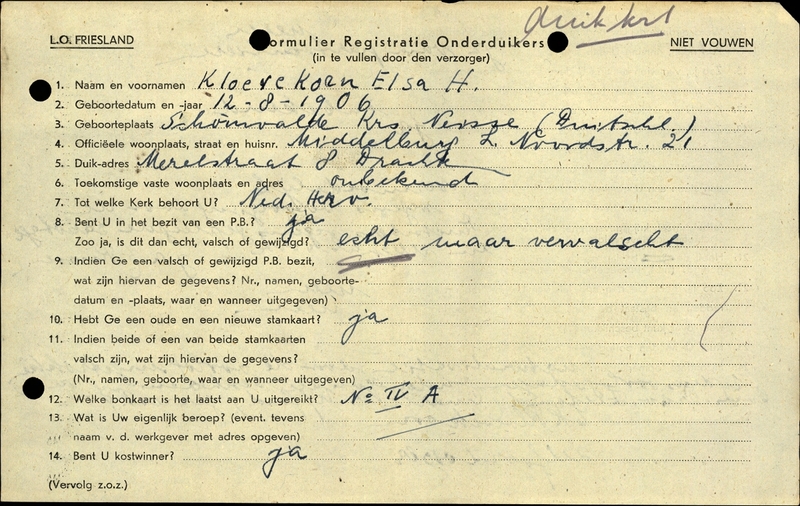 L.O. FRIESLAND
Formulier Registratie Onderduikers
NIET VOUWEN
(in te vullen door den verzorger)
1. Naam en voornamen Kloevekorn Elsa H.
2. Geboortedatum en -jaar 12-8-1906
3. Geboorteplaats Schönwalde Krs Neisse (Duitschl.)
4. Officiëele woonplaats, straat en huisnr. Middelburg L. Noordstr. 21
5. Duik-adres Merelstraat 8 Dracht
6. Toekomstige vaste woonplaats en adres onbekend
7. Tot welke Kerk behoort U? Ned. Herv.
8. Bent U in het bezit van een P.B.? ja
Zoo ja, is dit dan echt, valsch of gewijzigd? echt maar vervalscht
9. Indien Ge een valsch of gewijzigd P.B. bezit,
wat zijn hiervan de gegevens? Nr., namen, geboorte-
datum en -plaats, waar en wanneer uitgegeven)
10. Hebt Ge een oude en een nieuwe stamkaart? ja
11. Indien beide of een van beide stamkaarten
valsch zijn, wat zijn hiervan de gegevens?
(Nr., namen, geboorte, waar en wanneer uitgegeven)
12. Welke bonkaart is het laatst aan U uitgereikt? No IV A
13. Wat is Uw eigenlijk beroep? (event. tevens
naam v. d. werkgever met adres opgeven)
14. Bent U kostwinner? ja
(Vervolg z.o.z.)